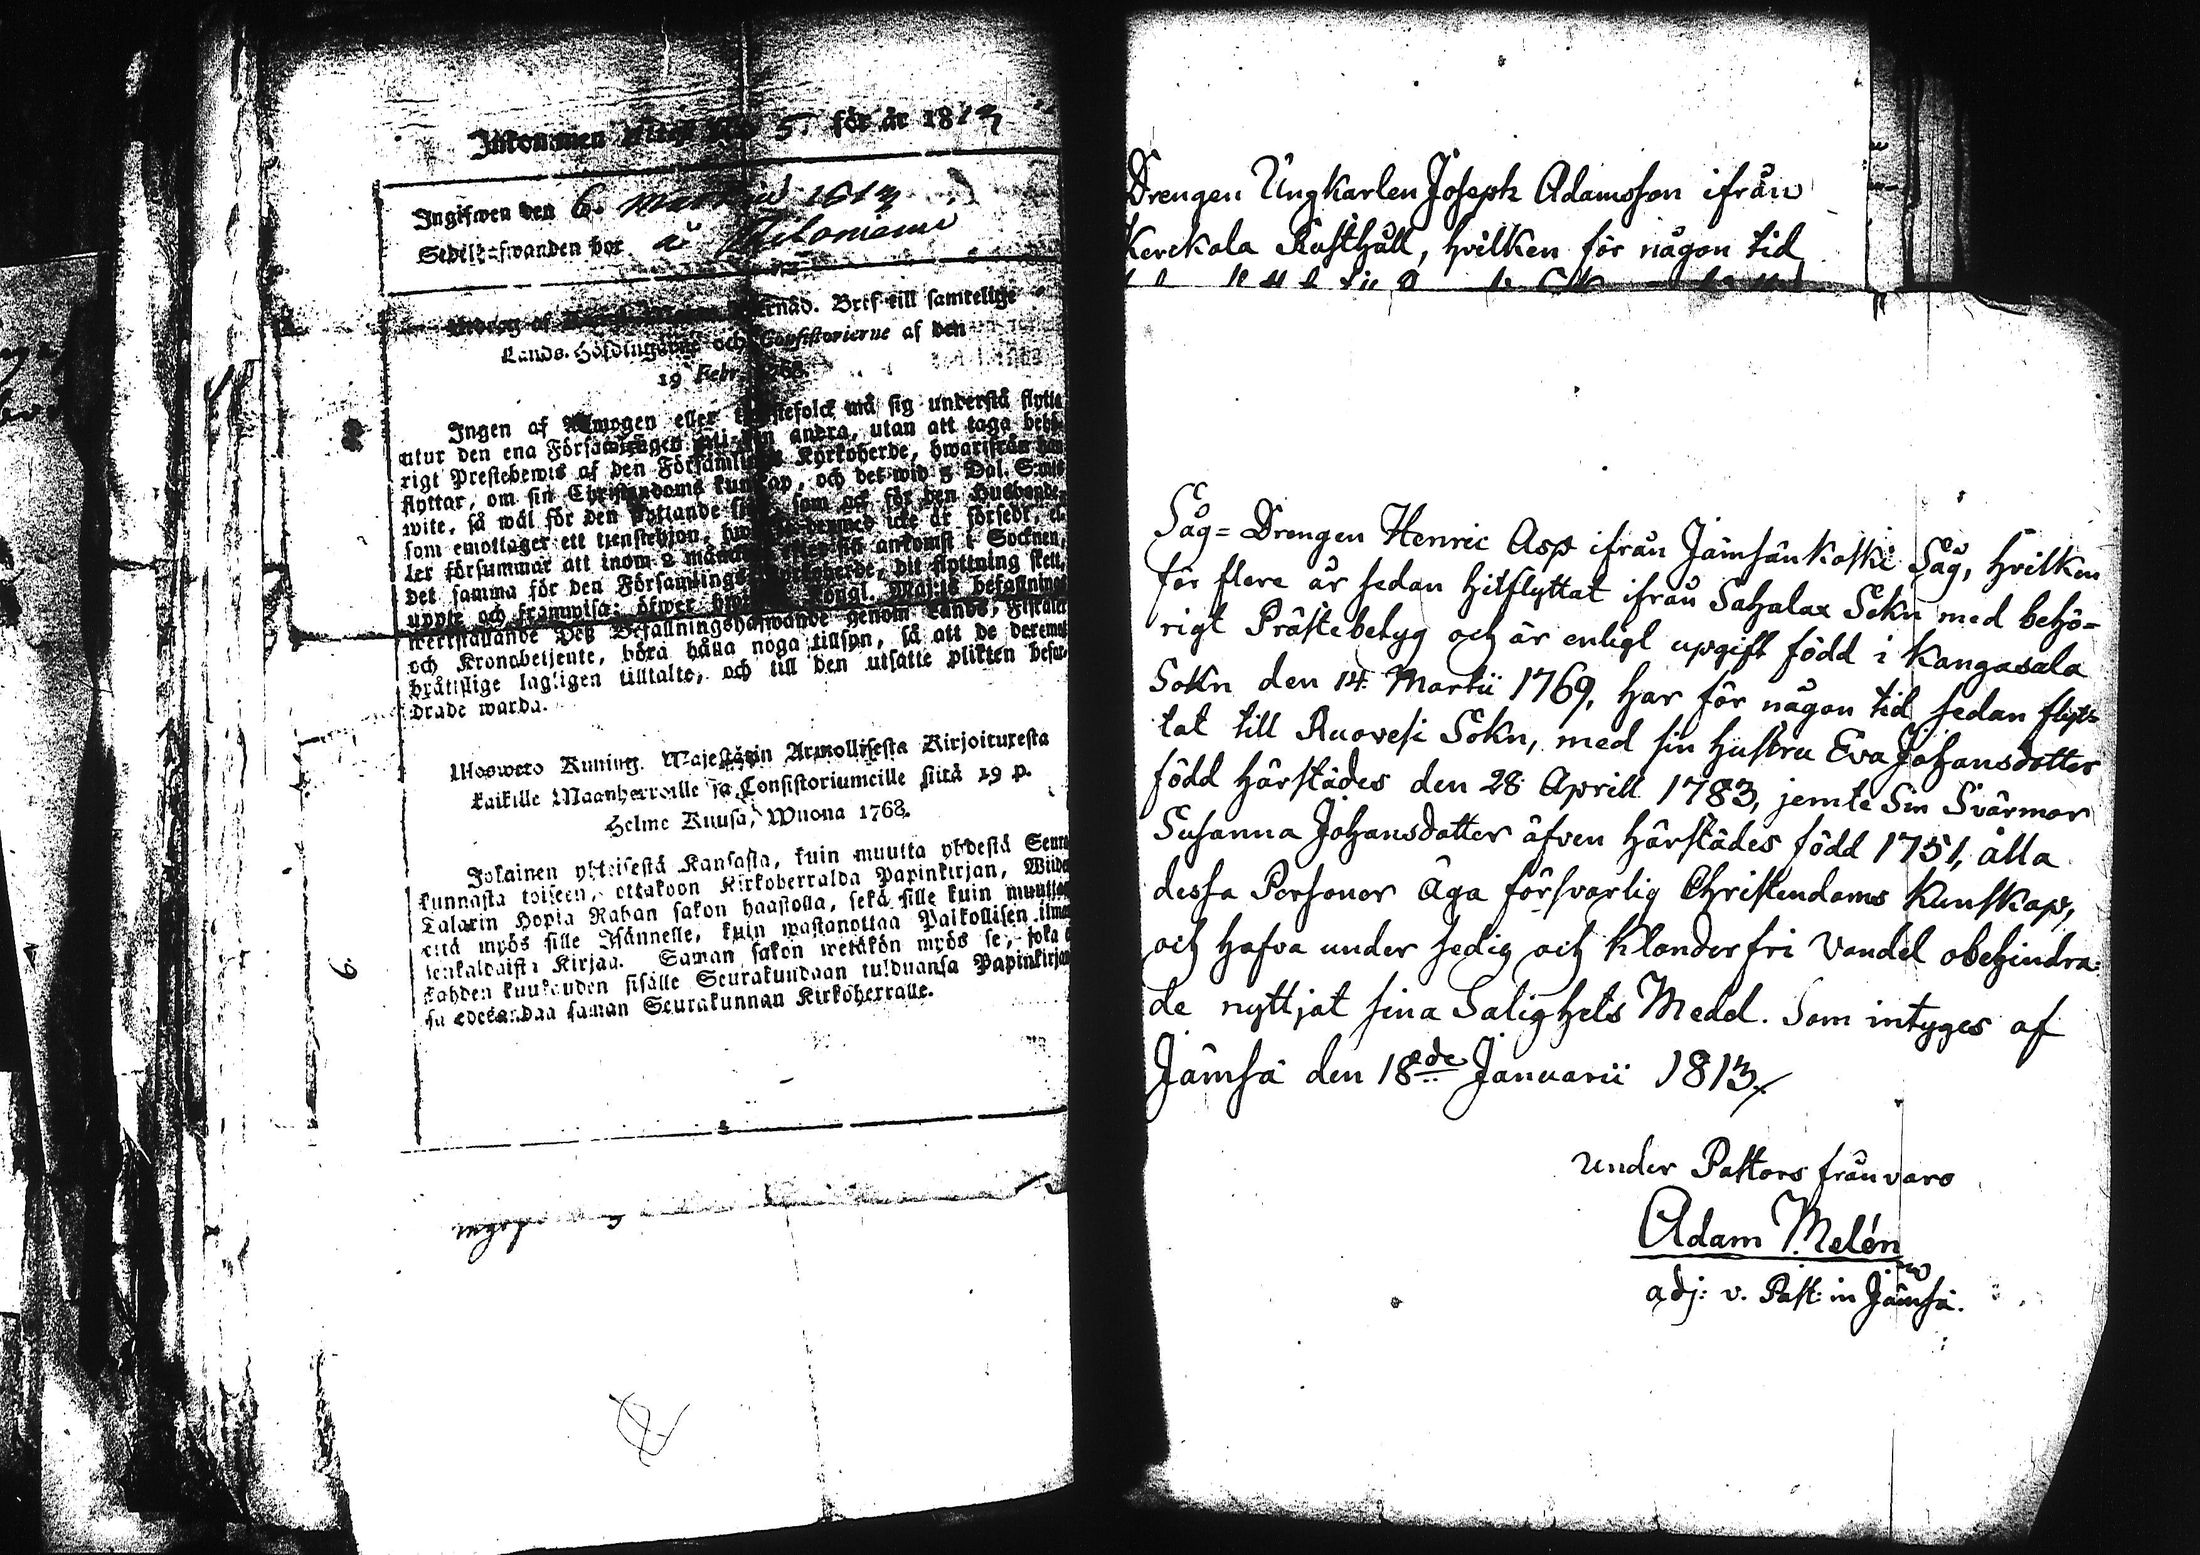 Inkommen Attest No 5. för år 1813
Ingifwen den 6. Martii 1813
Sedelhafwanden bor å
Utdrag af Bref till samtelige
Lands-Höfdingarne och Consistorierne af den
19 Febr. 1768.
Ingen af Allmogen eller tjenstefolck må sig understå flytta
utur den ena Församlingen till den andra, utan att taga behö-
rigt Prestebewis af den Församlings Kyrkoherde, hwarifrån han
flyttar, om sin Christendoms kunskap, och det wid 5 Dal. S:mts
wite, så wäl för den flyttande sjelf, som ock för den Husbonde,
som emottager ett tjenstehjon, hwilket dermed icke är försedt, el-
ler försummar att inom 2 månader efter sin ankomst i Socknen,
det samma för den Församlings Kyrkoherde, dit flyttning skett,
uppte och framwisa; öfwer hwilken Kongl. Maj:ts befallnings
werkställande Deß Befallningshafwande genom Lands, Fiskaler
och Kronobetjente, böra hålla noga tillsyn, så att de deremot
bråtslige lagligen tilltalte, och till den utsatte plikten befor-
drade warda.
Ulosweto Kuning. Majestätin Armollisesta Kirjoituxesta
kaikille Maanherroille ja Consistoriumeille siitä 19 p.
Helme Kuusa, Wuona 1768.
Jokainen yhteisestä Kansasta, kuin muutta yhdestä Seura-
kunnasta toiseen, ottakoon Kirkoherralda Papinkirjan, Wiiden
Talarin Hopia Rahan sakon haastolla, sekä sille kuin muuttaa
että myös sille Isännelle, kuin wastanottaa Palkollisen ilman
senkaldaista Kirjaa. Saman sakon wetäkön myös se, joka ei
kahden kuukauden sisälle Seurakundaan tulduansa Papinkirjaa
saman Seurakunnan Kirkoherralle.
6.
Drengen Ungkarlen Joseph Adamsson ifrån
Kerckola Rusthåll, hvilken för någon tid
Såg=Drengen Henric Asp ifrån Jämsänkoski Såg, hvilken
för flere år sedan hitflyttat ifrån Sahalax Sokn med behö=
rigt Prästebetyg och är enligt upgift född i Kangasala
Sokn den 14. Martii 1769, har för någon tid sedan flyt=
tat till Ruovesi Sokn, med sin hustru Eva Johansdotter
född härstädes den 28. Aprill 1783, jemte Sin Svärmor
Susanna Johansdotter äfven härstädes född 1751, alla
dessa Personer äga försvarlig Christendoms Kunskap,
och hafva under sedig och klanderfri Vandel obehindra=
de nyttjat sina Salighets Medel. Som intyges af
Jämsä den 18de Januarii 1813.
under Pastors frånvaro
Adam Melén
adj: v. Past: in Jämsä.